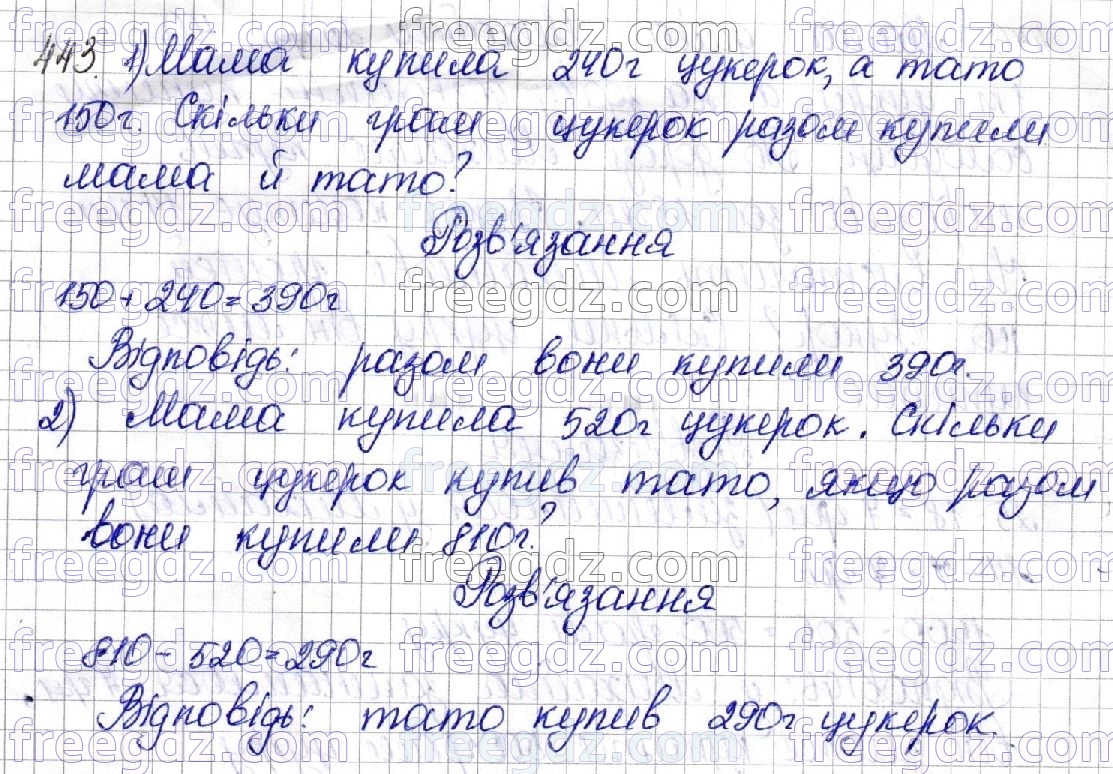 443. 1) Мама купила 240г цукерок, а тато
150г. Скільки грам цукерок разом купили
мама й тато?
Розв'язання
150 + 240 = 390г
Відповідь: разом вони купили 390г.
2) Мама купила 520г цукерок. Скільки
грам цукерок купив тато, якщо разом
вони купили 810г?
Розв'язання
810 - 520 = 290г
Відповідь: тато купив 290г цукерок.